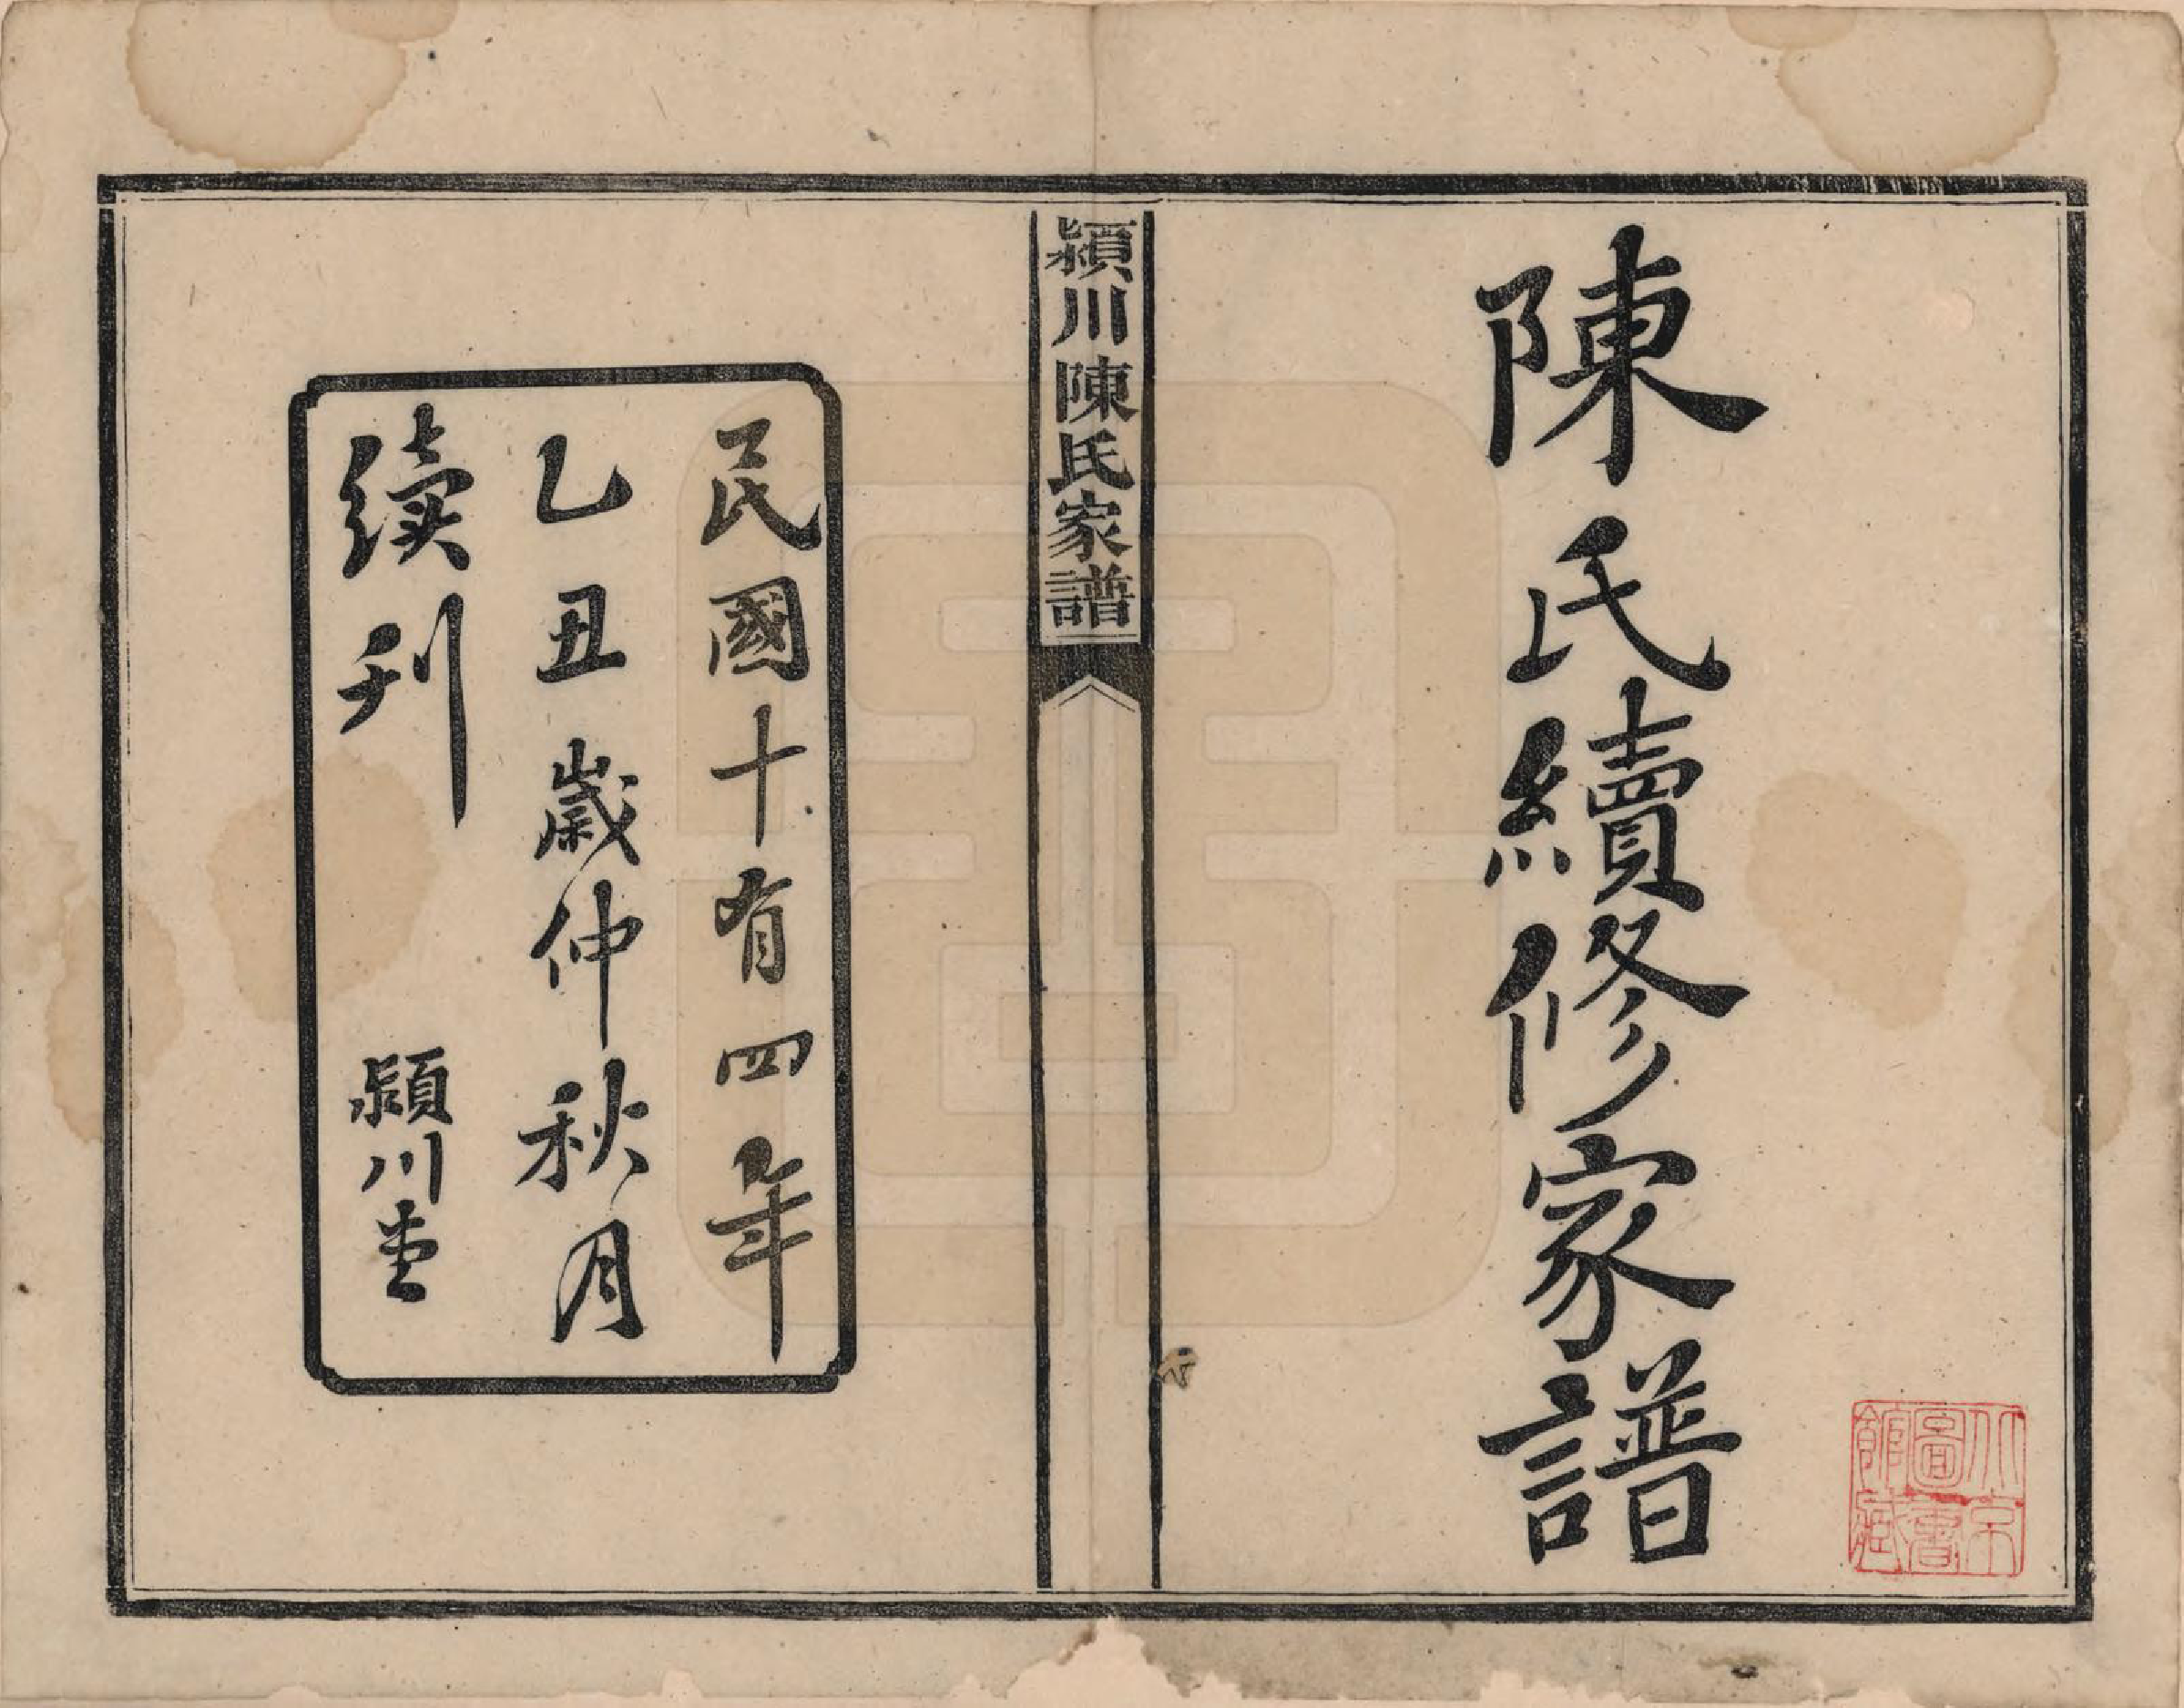 陳氏續修家譜
北京
圖書
館藏
潁川陳氏家譜
民國十有四年
乙丑歲仲秋月
續刊 潁川堂